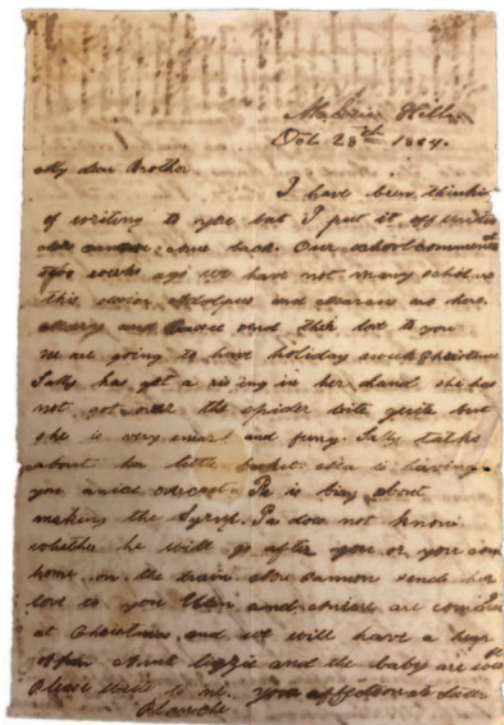 Hills
Oct 28th 1864.
My dear Brother
I have been thinkin
of writing to you but I put it off
came back. Our school commenced
two weeks ago we have not many
this and are here.
Mary and send their love to you
we are going to have holiday Christmas
Sally has got a rising in her hand she has
not got over the spider bite quite but
she is very smart and funy. Sally talks
about her little basket. is having
you a nice overcoat. Pa is busy about
making the Syrup. Pa does not know
whether he will go after you or you com
home on the train. Cannon sends her
love to you and are coming
at Christmas and we will have a heap
of fun Aunt Lizzie and the baby are well
Please write to me. your affectionate Sister
Blanche